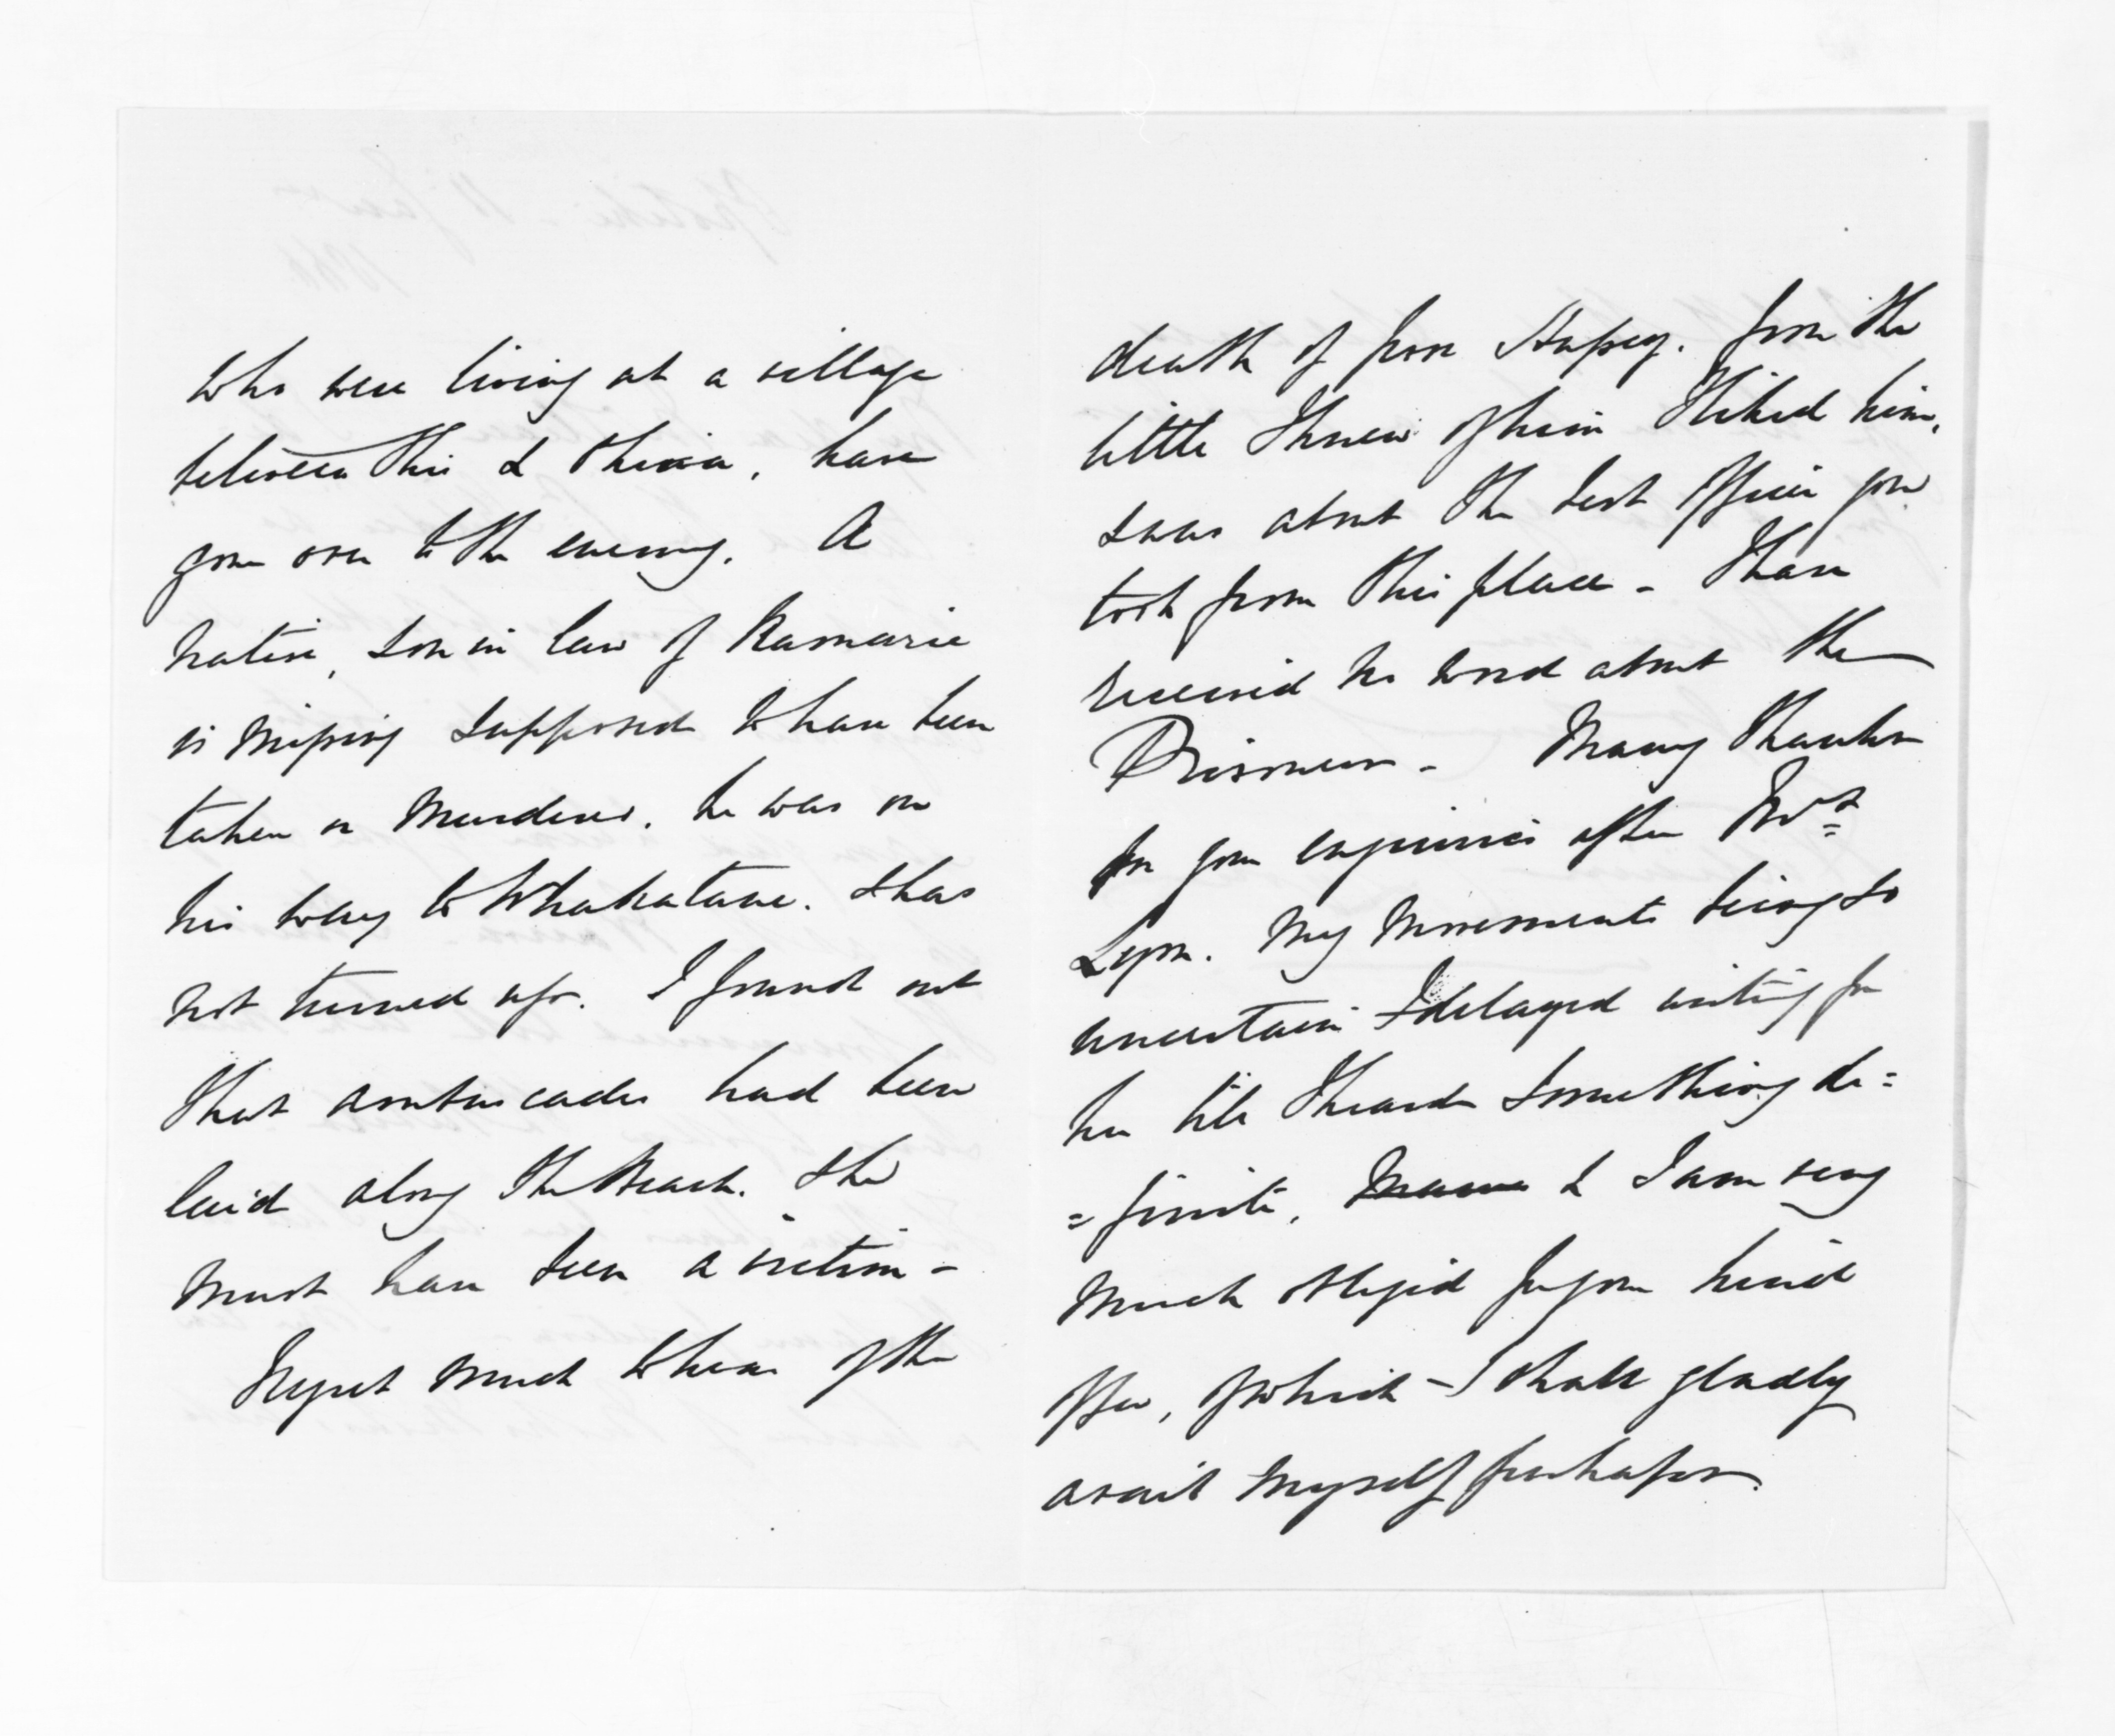 who were living at a village
between this & Ohiwa, have
gone over to the enemy. A
native, son in law of Ramarie
is missing supposed to have been
taken or murdered. he was on
his way to Whakatane. & has
not turned up. I found out
that ambuscades had been
laid along the Beach. & he
must have been a victim -
I regret much to hear of the
death of poor From the
little I knew of him I liked him,
& was about the best officer you
took from this place - I have
received no word about the
Prisoners - Many thanks
for your enquiries after Mrs
Lyon. My movements being so
uncertain I delayed writing for
her till I heard something de=
=finite, & I am very
much obliged for your kind
offer, of which - I shall gladly
avail myself perhaps.